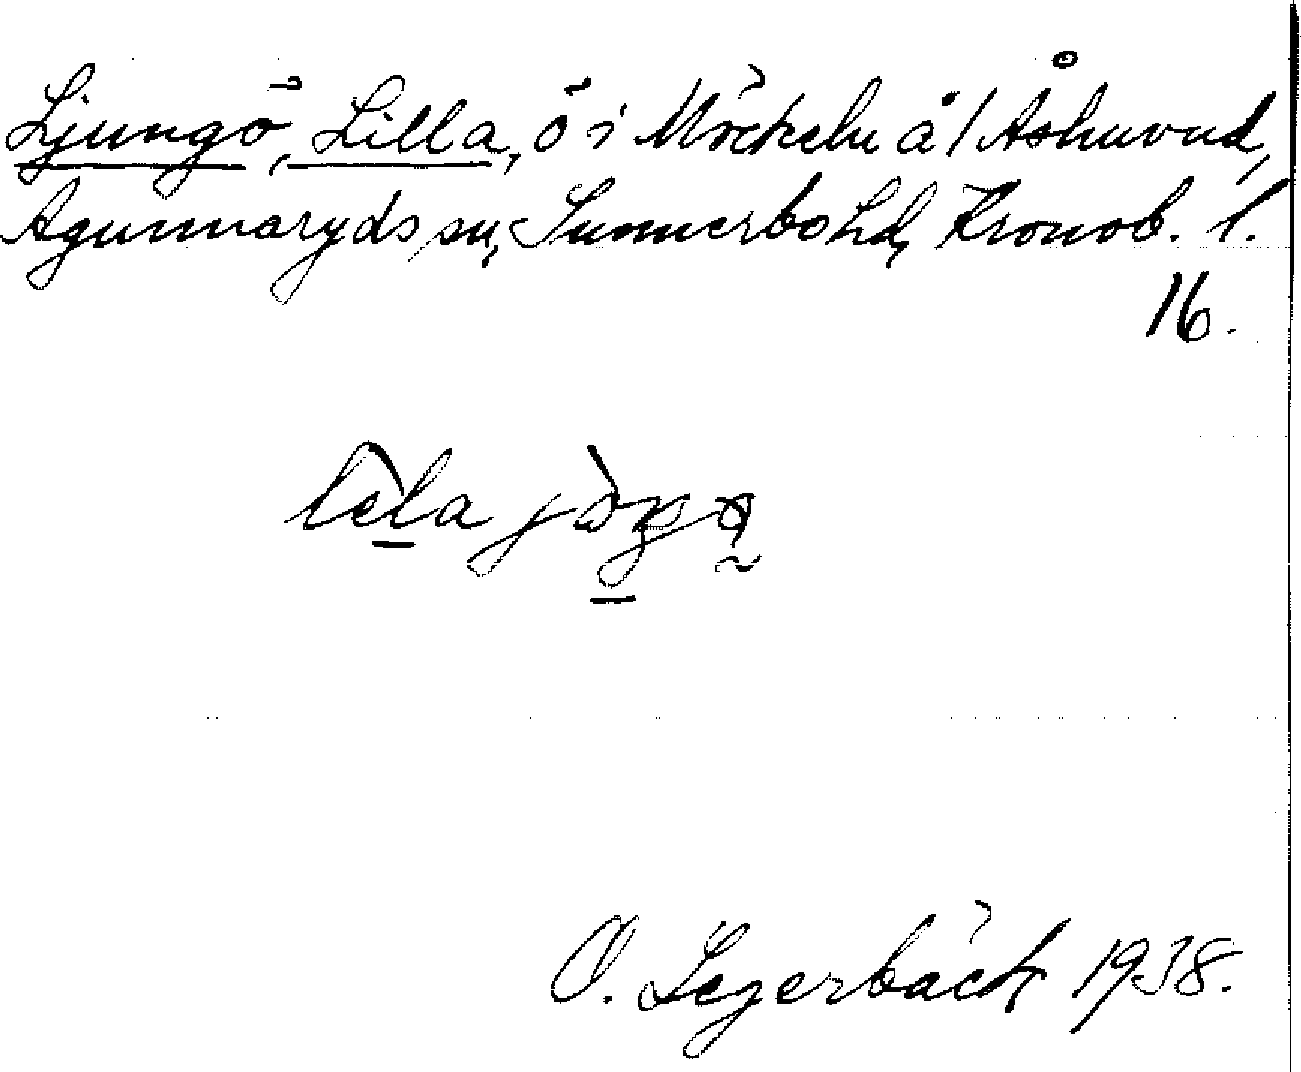 Ljungö, Lilla, ö i Möckeln å / Åshuvud,
Agunnaryds sn, Sunnerbo hd, Kronob. l.
16.
O. Segerbäck 1938.